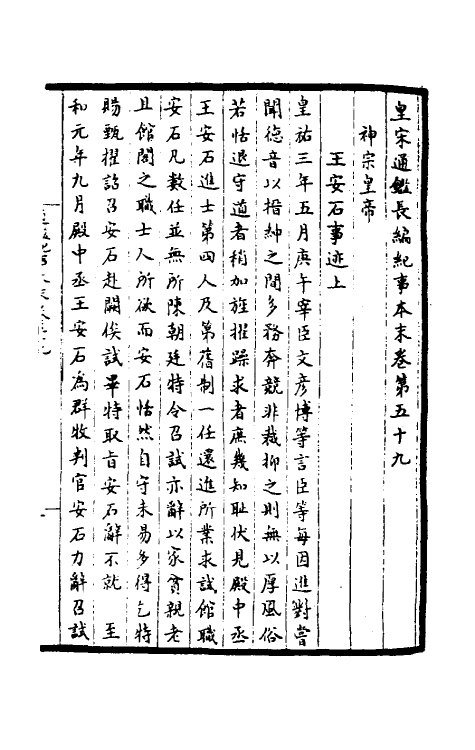 皇宋通鑑長編紀事本末卷第五十九
神宗皇帝
王安石事迹上
皇祐三年五月庚午宰臣文彦博等言臣等每因進對嘗
聞德音以搢紳之間多務奔競非裁抑之則無以厚風俗
若恬退守道者稍加旌擢躁求者庶幾知耻伏見殿中丞
王安石進士第四人及第舊制一任還進所業求試館職
安石凡數任並無所陳朝廷特令召試亦辭以家貧親老
且館閣之職士人所欲而安石恬然自守未易多得乞特
賜甄擢詔召安石赴闕俟試畢特取旨安石辭不就　至
和元年九月殿中丞王安石為群牧判官安石力辭召試